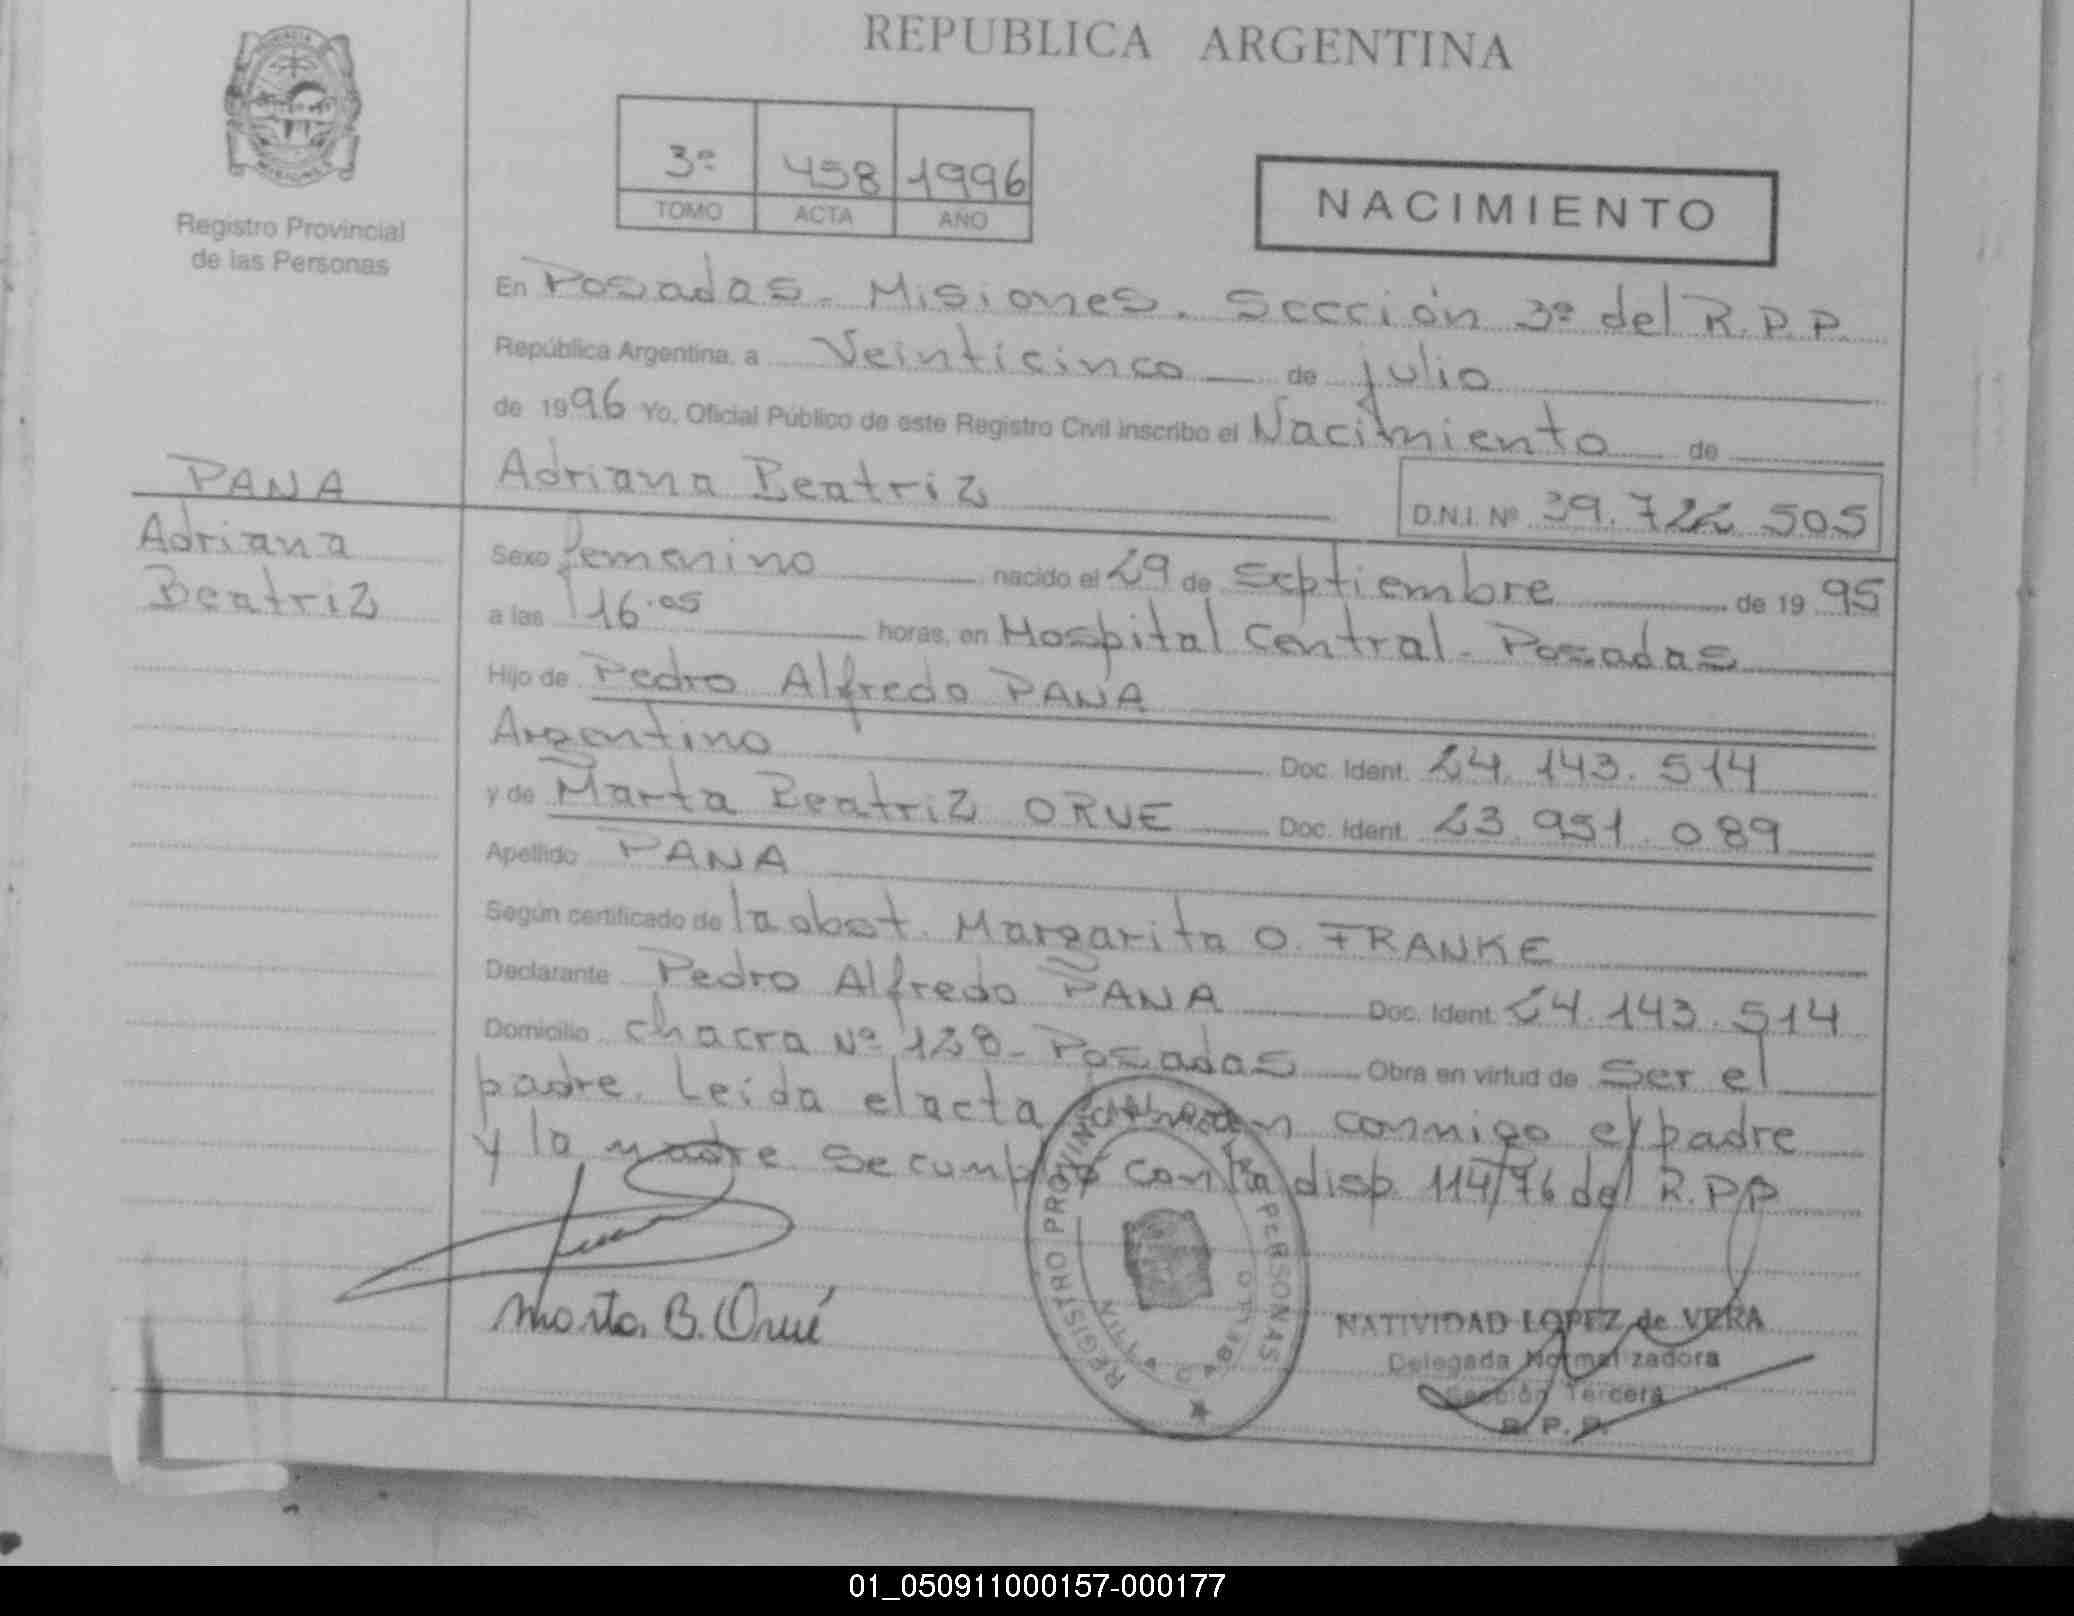 REPUBLICA ARGENTINA
Registro Provincial
de las Personas
3º 458 1996
TOMO ACTA AÑO
NACIMIENTO
En Posadas - Misiones. Sección 3º del R.P.P.
República Argentina, a Veinticinco de julio
de 1996 Yo, Oficial Público de este Registro Civil inscribo el Nacimiento de
PANA
Adriana
Beatriz
Adriana Beatriz D.N.I. Nº 39.722.505
Sexo femenino nacido el 29 de Septiembre de 1995
a las 16.05 horas, en Hospital Central - Posadas
Hijo de Pedro Alfredo PANA
Argentino Doc. Ident. 24.143.514
y de Marta Beatriz ORUE Doc. Ident. 23.951.089
Apellido PANA
Según certificado de la obst. Margarita O. FRANKE
Declarante Pedro Alfredo PANA Doc. Ident. 24.143.514
Domicilio Chacra Nº 128 - Posadas Obra en virtud de Ser el
padre. Leída el acta conmigo el padre
y la madre. Se cumplió con la disp. 114/76 del R.P.P
Marta. B. Orué
REGISTRO PROVINCIAL PERSONAS
VILLA CABELLO
NATIVIDAD LOPEZ de VERA
Delegada Normalizadora
Sección Tercera
R.P.P.
01_050911000157-000177